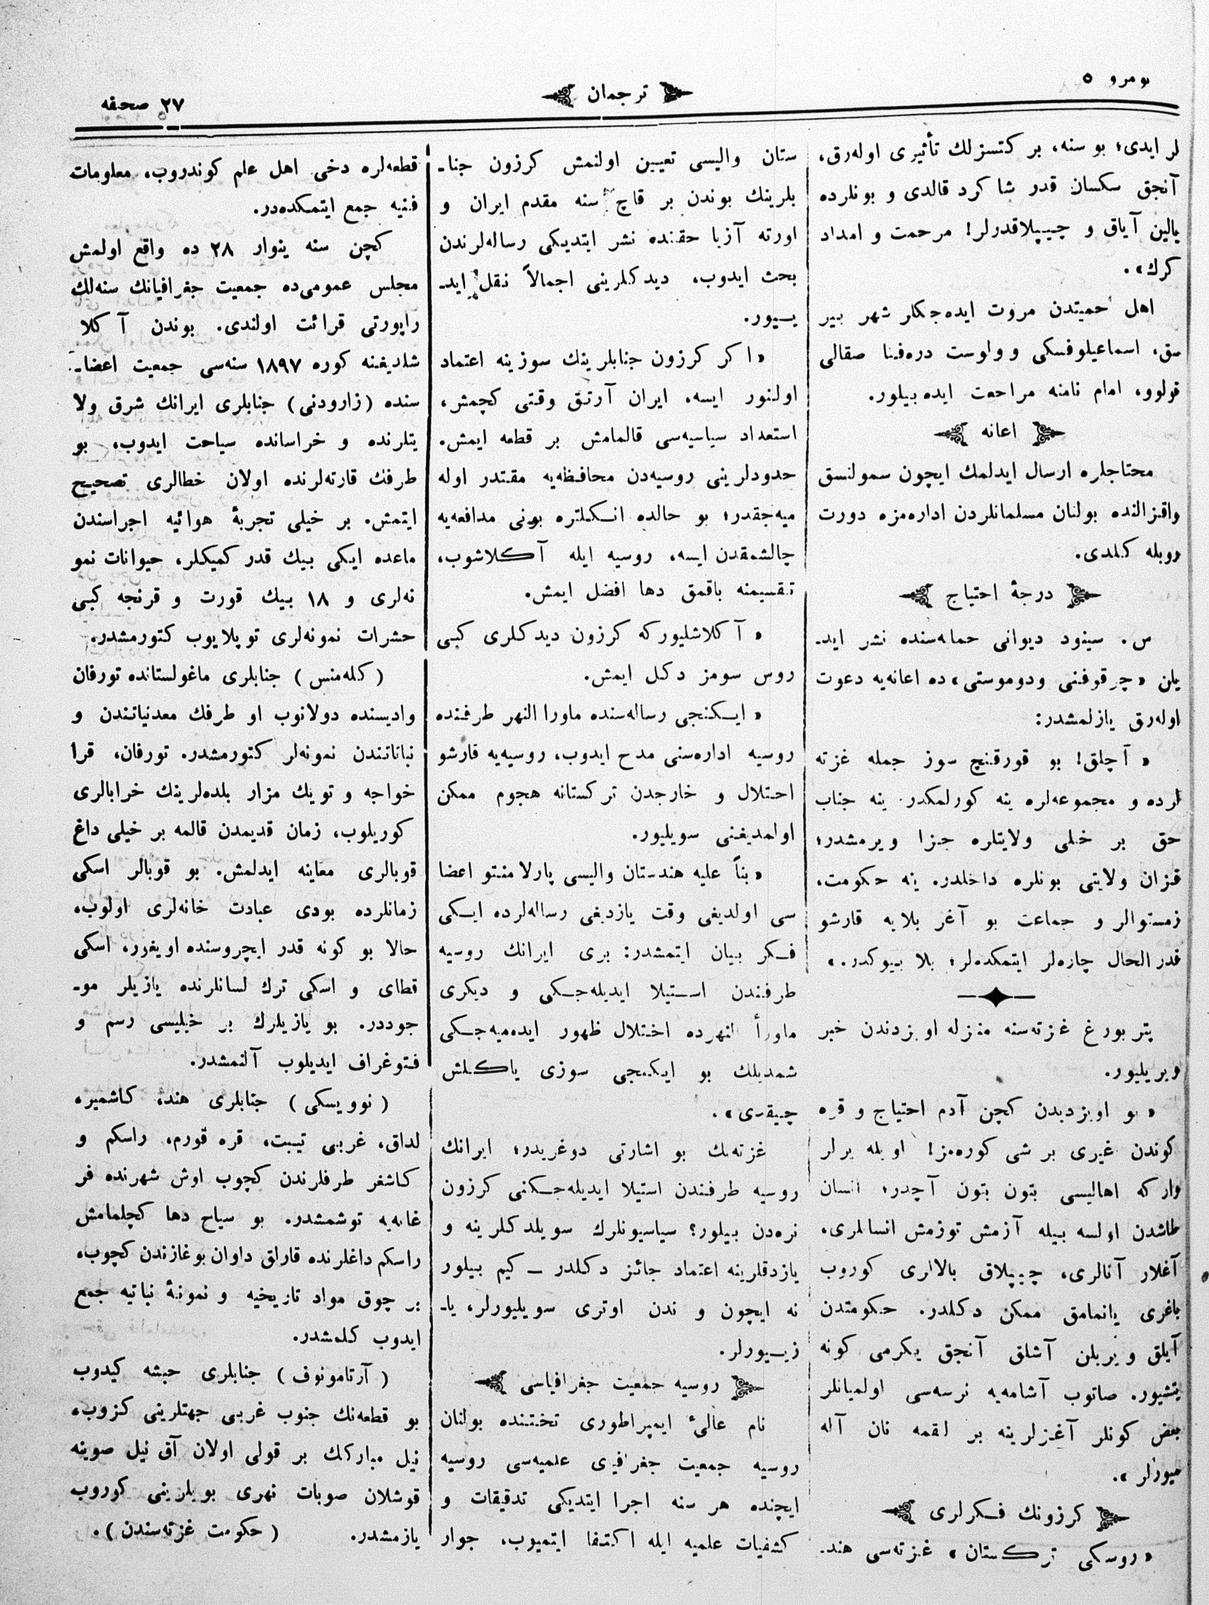 نومرو ٥
ترجمان
٢٧ صحيفه
لر ايدى؛ بو سنه، بر كتسزلك تأثيرى اوله‌رق،
آنجق سكسان قدر شاكرد قالدى و بونلرده
يالين آياق و چيپلاقدرلر! مرحمت و امداد
كرك».
اهل حميتدن مروت ايده‌جكلر شهر بير
سق، اسماعيلوفسكى وولوست دره‌فينا صقالى
قولوو، امام نامنه مراحعت ايده‌بيلور.
اعانه
محتاجلره ارسال ايدلمك ايچون سمولنسق
واقزالنده بولنان مسلمانلردن اداره‌مزه دورت
روبله كلدى.
درجهٔ احتياج
س. سينود ديوانى حمله‌سنده نشر ايد-
يلن «چرقوفنى ودوموستى» ده اعانه‌يه دعوت
اوله‌رق يازلمشدر:
« آچلق! بو قورقنچ سوز جمله غزته
لرده و مجموعه‌لره ينه كورلمكدر. ينه جناب
حق بر خيلى ولايتلره جزا ويرمشدر؛
قزان ولايتى بونلره داخلدر. ينه حكومت،
زمستوالر و جماعت بو آغر بلايه قارشو
قدر الحال چاره‌لر ايتمكده‌لر؛ بلا بيوكدر.»
پتر بورغ غزته‌سنه منزله اوبزدندن خبر
ويريليور.
« بو اوبزديدن كچن آدم احتياج و قره
كوندن غيرى بر شى كوره‌مز! اويله يرلر
واركه اهاليسى بتون بتون آچدر؛ انسان
طاشدن اولسه بيله آزمش توزمش انسانلرى،
آغلار آنالرى، چيپلاق بالالرى كوروب
باغرى يانمامق ممكن دكلدر. حكومتدن
آيلق ويريلن آشلق آنجق يكرمى كونه
يتشيور. صاتوب آشامه‌يه نرسه‌سى اولميانلر
بعض كونلر آغزلرينه بر لقمه نان آله
ميورلر ».
كرزونك فكرلرى
« روسكى تركستان » غزته‌سى هند-
ستان واليسى تعيين اولنمش كرزون جنا-
بلرينك بوندن بر قاچ سنه مقدم ايران و
اورته آزيا حقنده نشر ايتديكى رساله‌لرندن
بحث ايدوب، ديدكلرينى اجمالاً نقل ايد-
ييور.
« اكر كرزون جنابلرينك سوزينه اعتماد
اولنور ايسه، ايران آرتق وقتى كچمش،
استعداد سياسيه‌سى قالمامش بر قطعه ايمش.
حدودلرينى روسيه‌دن محافظه‌يه مقتدر اوله
ميه‌جقدر؛ بو حالده انكلتره بونى مدافعه‌يه
چالشمقدن ايسه، روسيه ايله آكلاشوب،
تقسيمنه باقمق دها افضل ايمش.
« آكلاشليوركه كرزون ديدكلرى كبى
روس سومز دكل ايمش.
« ايكنجى رساله‌سنده ماورا النهر طرفنده
روسيه اداره‌سنى مدح ايدوب، روسيه‌يه قارشو
احتلال و خارجدن تركستانه هجوم ممكن
اولمديغنى سويليور.
« بناً عليه هندستان واليسى پارلامنتو اعضا
سى اولديغى وقت يازديغى رساله‌لرده ايكى
فكر بيان ايتمشدر: برى ايرانك روسيه
طرفندن استيلا ايديله‌جكى و ديكرى
ماورأ النهرده اختلال ظهور ايده‌ميه‌جكى
شمديلك بو ايكنجى سوزى ياكلش
چيقدى».
غزته‌نك بو اشارتى دوغريدر؛ ايرانك
روسيه طرفندن استيلا ايديله‌جكنى كرزون
نره‌دن بيلور؟ سياسيونلرك سويلدكلرينه و
يازدقلرينه اعتماد جائز دكلدر — كيم بيلور
نه ايچون و ندن اوترى سويليورلر، يا-
زييورلر.
روسيه جمعيت جغرافياسى
نام عالئ ايمپراطورى تختنده بولنان
روسيه جمعيت جغرافيى علميه‌سى روسيه
ايچنده هر سنه اجرا ايتديكى تدقيقات و
كشفيات علميه ايله اكتفا ايتميوب، جوار
قطعه‌لره دخى اهل علم كوندروب، معلومات
فنيه جمع ايتمكده‌در.
كچن سنه ينوار ٢٨ ده واقع اولمش
مجلس عمومى‌ده جمعيت جغرافيانك سنه‌لك
راپورتى قرائت اولندى. بوندن آكلا
شلديغنه كوره ١٨٩٧ سنه‌سى جمعيت اعضا-
سنده (زارودنى) جنابلرى ايرانك شرق ولا
يتلرنده و خراسانده سياحت ايدوب، بو
طرفك قارته‌لرنده اولان خطالرى تصحيح
ايتمش. بر خيلى تجربهٔ هوائيه اجراسندن
ماعده ايكى بيك قدر كميكلر، حيوانات نمو
نه‌لرى و ١٨ بيك قورت و قرنجه كبى
حشرات نمونه‌لرى توپلايوب كتورمشدر.
(كله‌منس) جنابلرى ماغولستانده تورفان
واديسنده دولانوب او طرفك معدنياتندن و
نباتاتندن نمونه‌لر كتورمشدر. تورفان، قرا
خواجه و تويك مزار بلده‌لرينك خرابالرى
كوريلوب، زمان قديمدن قالمه بر خيلى داغ
قوبالرى معاينه ايدلمش. بو قوبالر اسكى
زمانلرده بودى عبادت خانه‌لرى اولوب،
حالا بو كونه قدر ايچروسنده اويغور، اسكى
قطاى و اسكى ترك لسانلرنده يازيلر مو-
جوددر. بو يازيلرك بر خيليسى رسم و
فتوغراف ايديلوب آلنمشدر.
(نوويسكى) جنابلرى هند، كاشمير،
لداق، غربى تيبت، قره قورم، راسكم و
كاشغر طرفلرندن كچوب اوش شهرنده فر
غانه‌يه توشمشدر. بو سياح دها كچلمامش
راسكم داغلرنده قارلق داوان بوغازندن كچوب،
بر چوق مواد تاريخيه و نمونهٔ نباتيه جمع
ايدوب كلمشدر.
(آرتامونوف) جنابلرى حبشه كيدوب
بو قطعه‌نك جنوب غربى جهتلرينى كزوب،
نيل مباركك بر قولى اولان آق نيل صوينه
قوشلان صوبات نهرى بويلرينى كوروب
يازمشدر. (حكومت غزته‌سندن).